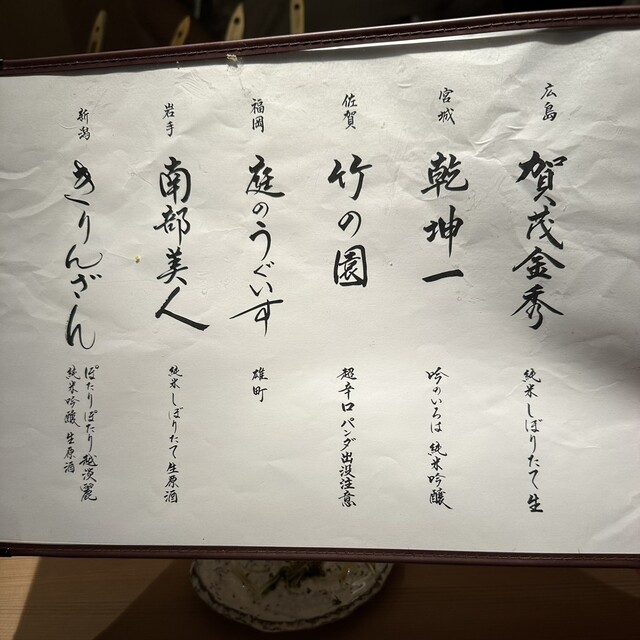 広島
賀茂金秀
純米しぼりたて生
宮城
乾坤一
吟のいろは 純米吟醸
佐賀
竹の園
超辛口パンダ出没注意
福岡
庭のうぐいす
雄町
岩手
南部美人
純米しぼりたて生原酒
新潟
きりんざん
ぽたりぽたり 越淡麗
純米吟醸 生原酒